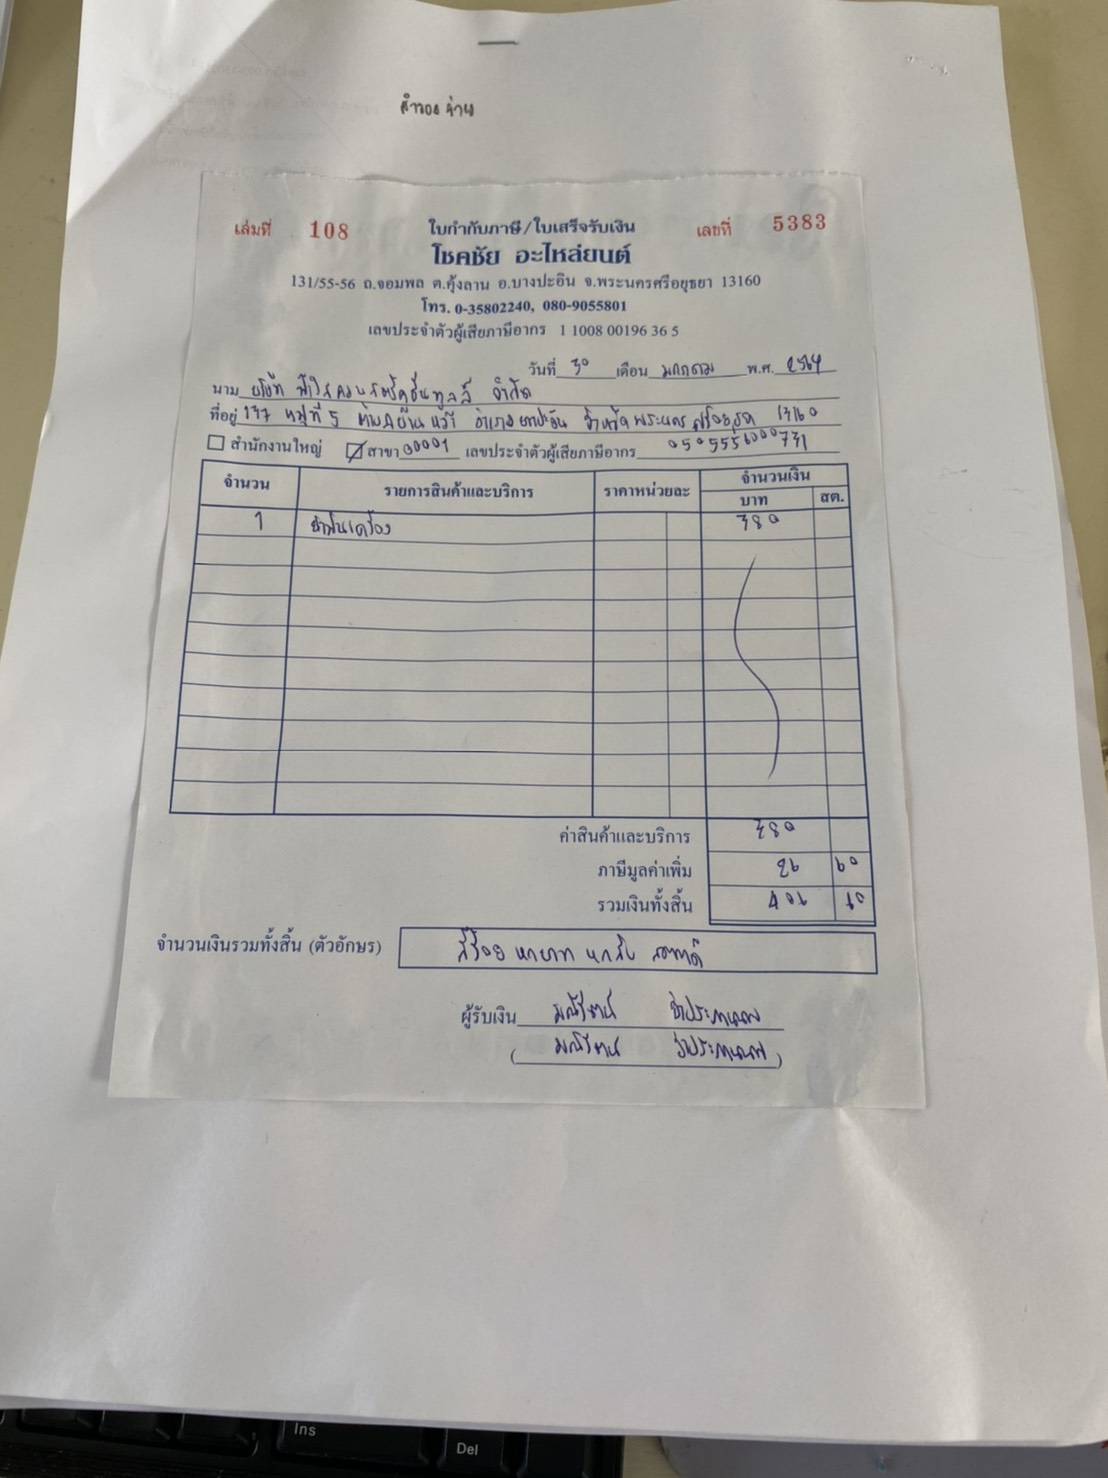 สำรองจ่าย
เล่มที่ 108 ใบกำกับภาษี/ใบเสร็จรับเงิน เลขที่ 5383
โชคชัย อะไหล่ยนต์
131/55-56 ถ.จอมพล ต.คุ้งลาน อ.บางปะอิน จ.พระนครศรีอยุธยา 13160
โทร. 0-35802240, 080-9055801
เลขประจำตัวผู้เสียภาษีอากร 1 1008 00196 36 5
วันที่ 30 เดือน มกราคม พ.ศ. 2564
นาม บริษัท ฟ้าใสคอนสตรัคชั่นทูลส์ จำกัด
ที่อยู่ 137 หมู่ที่ 5 ตำบลบ้าน อำเภอบางปะอิน จังหวัดพระนครศรีอยุธยา 13160
สำนักงานใหญ่ สาขา 00001 เลขประจำตัวผู้เสียภาษีอากร 0505556000731
จำนวน รายการสินค้าและบริการ ราคาหน่วยละ จำนวนเงิน
บาท สต.
1 น้ำมันเครื่อง 380
ค่าสินค้าและบริการ 380
ภาษีมูลค่าเพิ่ม 26 60
รวมเงินทั้งสิ้น 406 60
จำนวนเงินรวมทั้งสิ้น (ตัวอักษร) สี่ร้อยหกบาทหกสิบสตางค์
ผู้รับเงิน มณีรัตน์
( มณีรัตน์ )
Ins
Del